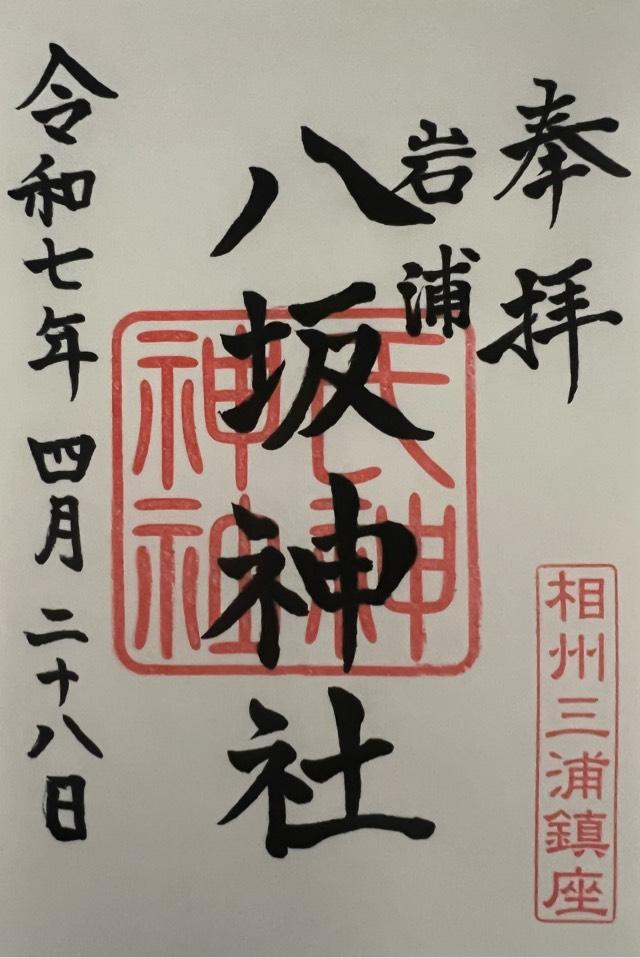 奉拝
相州三浦鎮座
岩浦
八坂神社
氏神
神社
令和七年四月二十八日